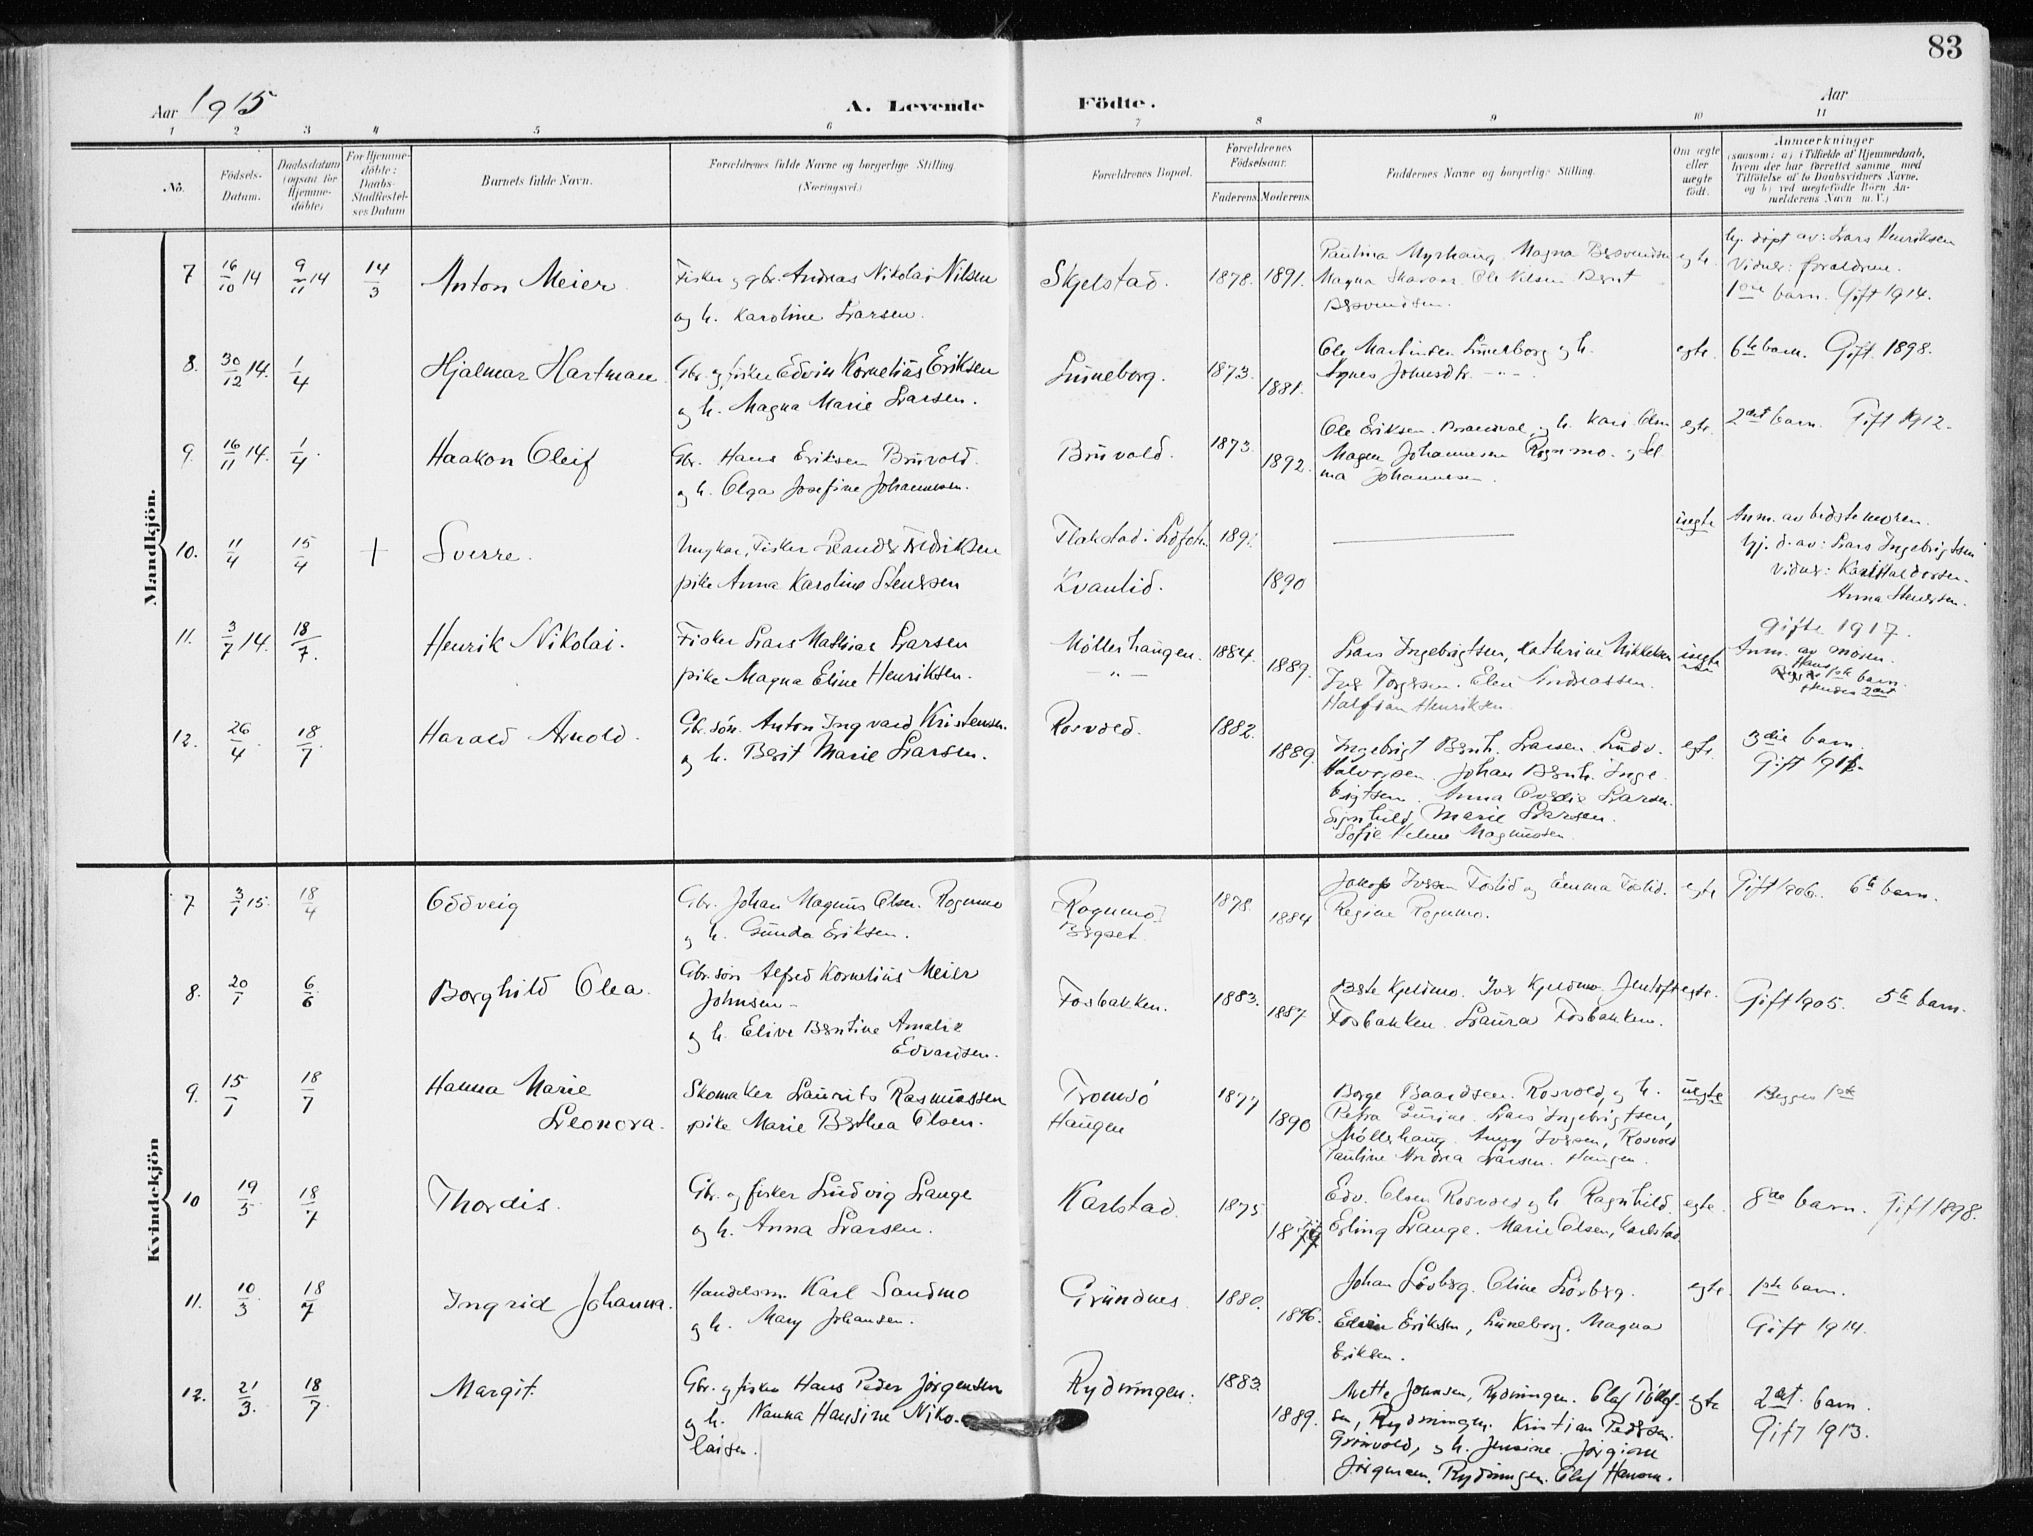 83
Aar 1915
A. Levende
Födte.
Aar
1 2 3 4 5 6 7 8 9 10 11
No.
Födsels-Datum.
Daabsdatum (ogsaa for Hjemme-döbte)
For Hjemme-döbte: Daabs-Stadfæstel-ses Datum
Barnets fulde Navn.
Forældrenes fulde Navne og borgerlige Stilling. (Næringsvei.)
Forældrenes Bopæl.
Forældrenes Födselsaar.
Faderens. Moderens.
Faddernes Navne og borgerlige Stilling.
Om ægte eller uægte født.
Anmærkninger
(saasom: a) i Tilfælde af Hjemmedaab, hvem der har forrettet samme med Tilföielse af to Daabsvidners Navne. og b) ved uægtefödte Börn Anmelderens Navn m.V.)
Mandkjön.
7 16/10 14 9/11 14 14/3 Anton Meier. Fisker og gbr. Andreas Nikolai Nilsen Skjelstad. 1878. 1891. egte. hj. døpt av: Lars Henriksen
og h. Karoline Larsen. Vidner: forældrene.
1ste barn. Gift 1914.
8. 30/12 14. 1/4 Hjalmar Hartman. Gbr. og fisker Edvin Kornelius Eriksen Luneborg. 1873. 1881. Ole Martinsen Luneborg og h. egte. 6te barn. Gift 1898.
og h. Magna Marie Larsen. Agnes Johnsdtr. - " -
9. 16/11 14. 1/4 Haakon Oleif Gbr. Hans Eriksen Bruvold. Bruvold. 1873. 1892. Ole Eriksen. og h. Kari Olsen egte. 2det barn. Gift 1912.
og h. Olga Josefine Johannesen. Magen Johannesen Rognmo. og Sel
ma Johannesen.
10. 11/4 15/4 + Sverre. Ungkar, Fisker Leander Fredriksen Flakstad i Lofoten 189 uegte Anm. av bedstemoren.
pike Anna Karoline Stenersen Kvantid. 1890 hj. d. av: Lars Ingebrigtsen
Vidner: Karl Haldorsen.
Anna Stenersen.
11. 3/7 14. 18/7. Henrik Nikolai. Fisker Lars Mathias Larsen Møllerhaugen. 1884. 1889. Lars Ingebrigtsen, Kathrine Mikkelsen uegte Gifte 1917.
pike Magna Eline Henriksen. - " - Iver Torgersen. Elen Andreassen. Anm. av moren.
Halfdan Henriksen. Hans 1ste barn.
Hendes 2det
12. 26/4. 18/7 Harald Arnold. Gbr. søn. Anton Ingvard Kristensen. Rosvold. 1882. 1889. Ingebrigt Bernh. Larsen. Ludv. egte. 3die barn.
og h. Berit Marie Larsen. Halvorsen. Johan Bernh. Inge Gift 191
brigtsen. Anna Ovedie Larsen.
Signhild Marie Larsen.
Sofie Helene Magnussen.
Kvindekjön
7 3/1 15. 18/4 Oddveig Gbr. Johan Magnus Olsen. Rognmo [Rognmo] 1878. 1884 Jakob Iversen Foslid og Emma Foslid. egte Gift 1906. 6te barn.
og h. Gunda Eriksen. Bergset. Regine Rognmo.
8. 20/1 6/6. Borghild Olea. Gbr. søn Alfred Kornelius Meier Fosbakken. 1883. 1887 Berte Kjeldmo. Iver Kjeldmo. Jentoft egte. Gift 1905. 5te barn.
Johnsen - Fosbakken. Laura Fosbakken.
og h. Elive Berntine Amalie
Edvardsen.
9. 15/1 18/7 Hanna Marie Skomaker Laurits Rasmussen Tromsø 1877 1890 Borge Baardsen. Rosvold, og h. uegte Begges 1ste
Leonora. pike Marie Berthea Olsen. Haugen Petra Gurine. Lars Ingebrigtsen,
Møllerhaug. Anny Iversen, Rosvold
Pauline Andrea Larsen. Haugen.
10 19/5. 18/7 Thordis. Gbr. og fisker Ludvig Lange Karlstad. 1875. Edv. Olsen Rosvold og h. Ragnhild. egte. 8de barn. Gift 1898.
og h. Anna Larsen. Erling Lange. Marie Olsen, Karlstad.
11. 10/3. 18/7 Ingrid Johanna. Handelsm. Karl Sandmo Grundnes. 1880. 1896. Johan Løvberg. Oline Løvberg. egte. 1ste barn.
og h. Mary Johansen. Edvin Eriksen, Luneborg. Magna Gift 1914.
Eriksen.
12. 21/3. 18/7. Margit Gbr. og fisker Hans Peder Jørgensen Rydningen. 1883. 1889. Mette Johnsen, Rydningen. Olaf Tollef- egte 2det barn.
og h. Nanna Hansine Niko- sen, Rydningen. Kristian Pedersen Gift 1913.
laisen. Grønvold, og h. Jensine. Jørgine
Jørgensen. Rydningen. Olaf Hansen.